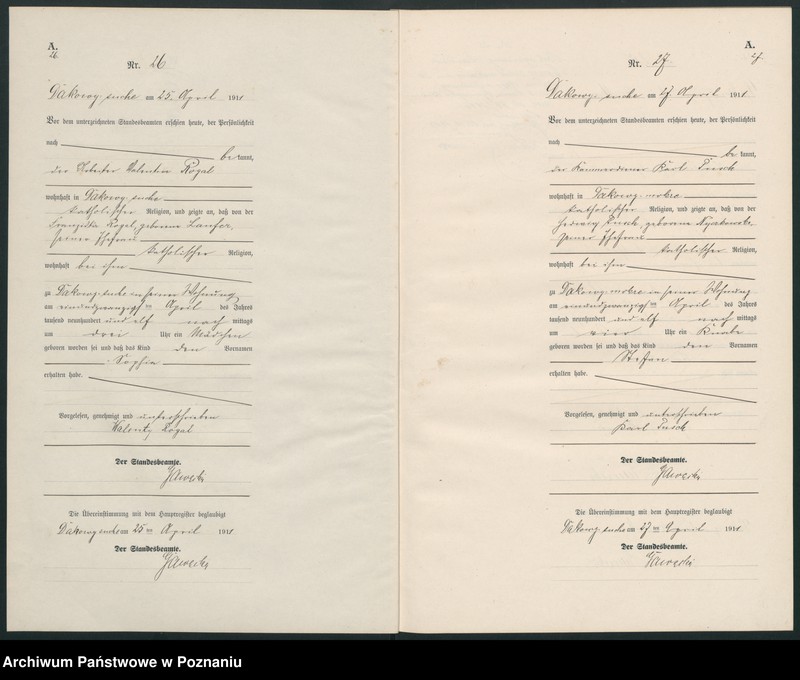 A.
26
Nr. 26
Dakowy suche am 25. April 1911
Vor dem unterzeichneten Standesbeamten erschien heute, der Persönlichkeit
nach
be kannt,
der Arbeiter Valentin Rogal
wohnhaft in Dakowy suche
katholischer Religion, und zeigte an, daß von der
Franziska Rogal, geborene Laufer,
seiner Ehefrau
katholischer Religion,
wohnhaft bei ihm
zu Dakowy suche in seiner Wohnung
am einundzwanzigsten April des Jahres
tausend neunhundert und elf nach mittags
um drei Uhr ein Mädchen
geboren worden sei und daß das Kind den Vornamen
Sophia
erhalten habe.
Vorgelesen, genehmigt und unterschrieben
Walenty Rogal
Der Standesbeamte.
Die Übereinstimmung mit dem Hauptregister beglaubigt
Dakowy suche am 25 ten April 1911
Der Standesbeamte.
A.
Nr. 27
Dakowy suche am 27 April 1911
Vor dem unterzeichneten Standesbeamten erschien heute, der Persönlichkeit
nach
be kannt,
der Kammerdiener Karl
wohnhaft in Dakowy mokre
katholischer Religion, und zeigte an, daß von der
Hedwig geborene
seiner Ehefrau
katholischer Religion,
wohnhaft bei ihm
zu Dakowy mokre in seiner Wohnung
am einundzwanzigsten April des Jahres
tausend neunhundert und elf nach mittags
um vier Uhr ein Knabe
geboren worden sei und daß das Kind den Vornamen
Stefan
erhalten habe.
Vorgelesen, genehmigt und unterschrieben
Karl
Der Standesbeamte.
Die Übereinstimmung mit dem Hauptregister beglaubigt
Dakowy suche am 27 ten April 1911
Der Standesbeamte.
Archiwum Państwowe w Poznaniu